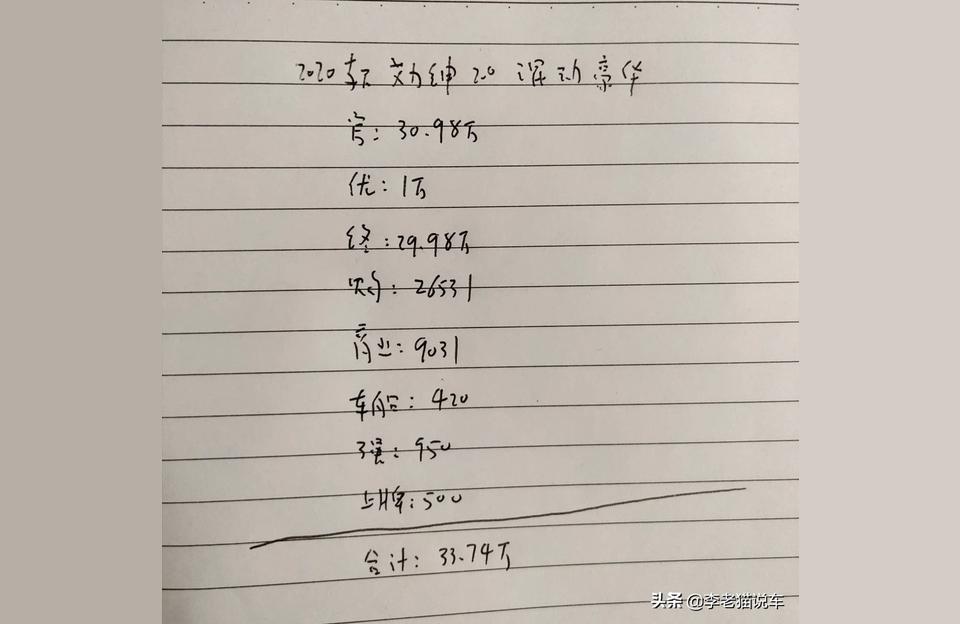 2020款 效绅 2.0 混动豪华
官:30.98万
优:1万
终:29.98万
购:26531
商业:9031
车船:420
交强:950
上牌:500
合计:33.74万
头条 @李老猫说车